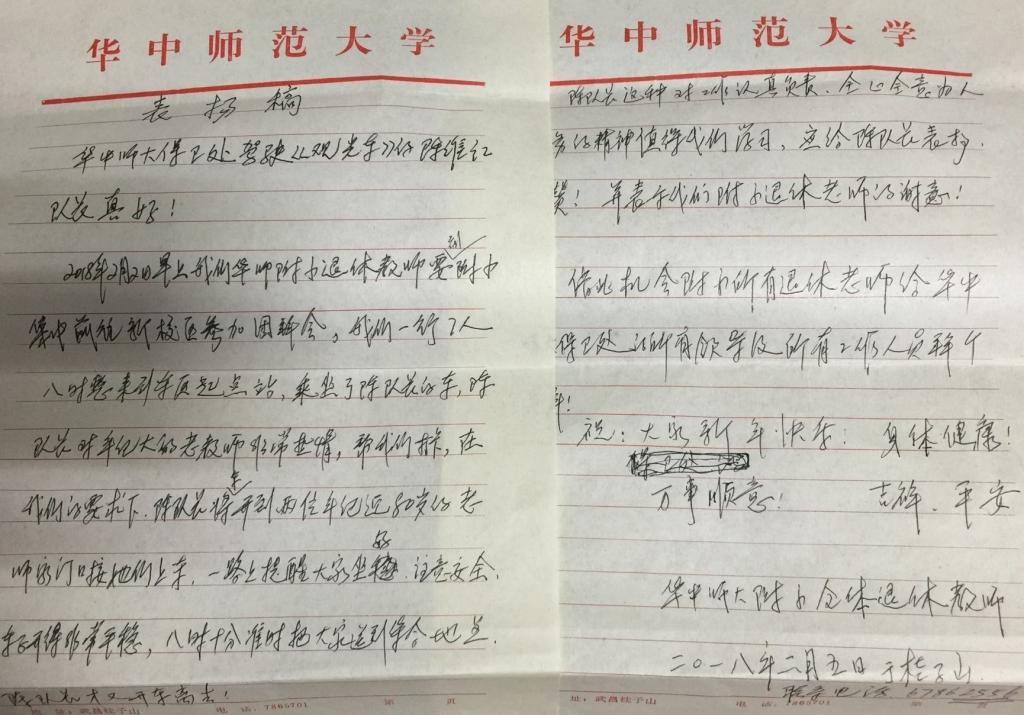 华中师范大学
表扬稿
华中师大保卫处驾驶《观光车》的陈维红
队长真好！
2018年2月2日早上我们华师附小退休教师要到附小
集中前往新校区参加团拜会，我们一行7人
八时整来到车区起点站，乘坐了陈队长的车，陈
队长对年纪大的老教师非常热情，帮我们，在
我们的要求下，陈队长将车开到两位年纪近80岁的老
师家门口接她们上车，一路上提醒大家坐好，注意安全，
车子开得非常平稳，八时十分准时把大家送到集合地点，
陈队长才又开车离去！
址：武昌桂子山 电话：7865701 第 页
华中师范大学
陈队长这种对工作认真负责、全心全意为人
的精神值得我们学习，应给陈队长表扬、
赞！并表示我们附小退休老师的谢意！
借此机会附小所有退休老师给华中
保卫处的所有领导及所有工作人员拜个
年！
祝：大家新年快乐！身体健康！
保卫处
万事顺意！吉祥、平安
华中师大附小全体退休教师
二〇一八年二月五日于桂子山
联系电话 67862556
址：武昌桂子山 电话：7865701 第 页